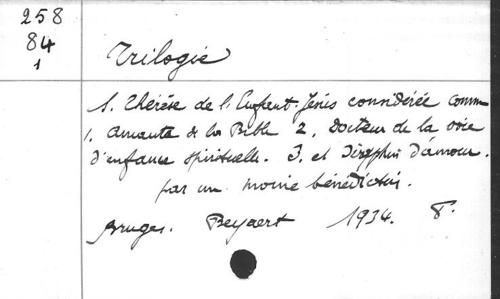 258
84
1
Trilogie
S. Thérèse de l'Enfant-Jésus considérée comme
1. amante de la Bible 2. Docteur de la voie
d'enfance spirituelle. 3. et Séraphin d'amour.
par un moine bénédictin.
Bruges. Beyaert 1934. 8°.